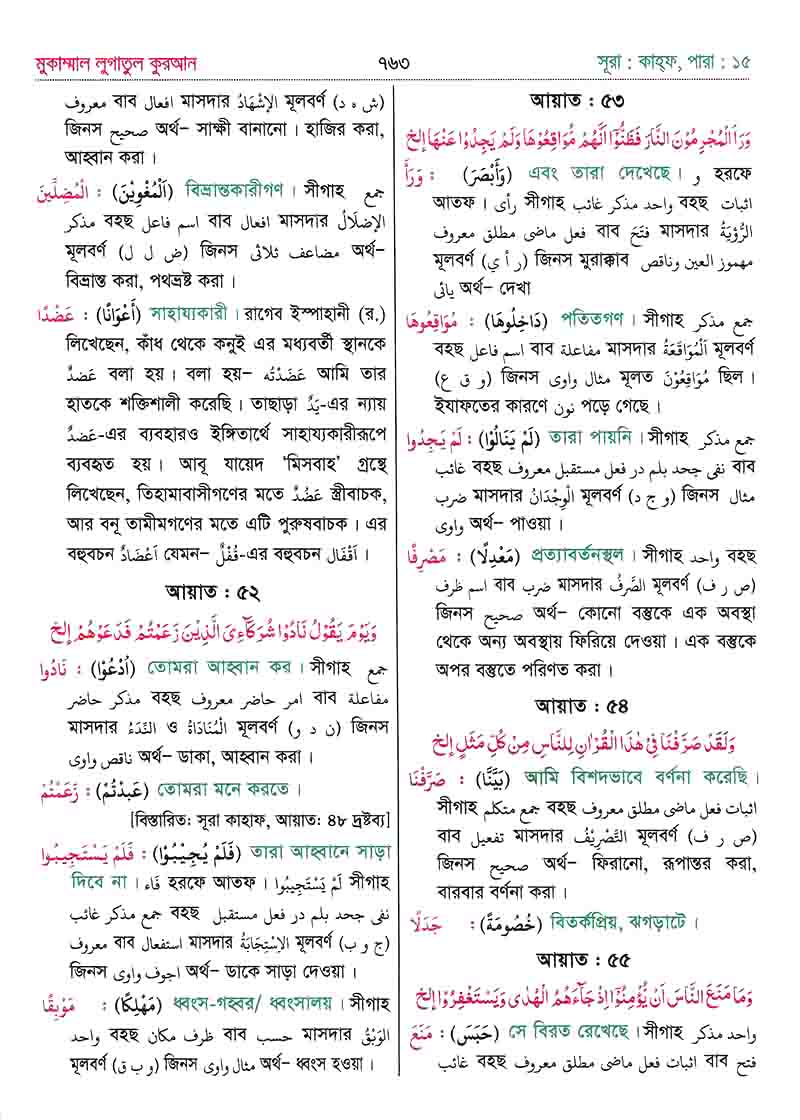 মুকাম্মাল লুগাতুল কুরআন
৭৬৩
সূরা : কাহ্ফ, পারা : ১৫
(ش ه د) মূলবর্ণ الإِشْهَادُ মাসদার افعال বাব معروف
জিনস صحيح অর্থ– সাক্ষী বানানো। হাজির করা,
আহ্বান করা।
الْمُضِلِّينَ : (اَلْمُغْوِيْنَ) বিভ্রান্তকারীগণ। সীগাহ جمع
مذكر বহছ اسم فاعل বাব افعال মাসদার الإِضلَالُ
মূলবর্ণ (ض ل ل) জিনস مضاعف ثلاثى অর্থ–
বিভ্রান্ত করা, পথভ্রষ্ট করা।
عَضُدًا : (أَعْوَانًا) সাহায্যকারী। রাগেব ইস্পাহানী (র.)
লিখেছেন, কাঁধ থেকে কনুই এর মধ্যবর্তী স্থানকে
عَضدٌ বলা হয়। বলা হয়– عَضَدْتُه আমি তার
হাতকে শক্তিশালী করেছি। তাছাড়া يَدٌ-এর ন্যায়
عَضدٌ-এর ব্যবহারও ইঙ্গিতার্থে সাহায্যকারীরূপে
ব্যবহৃত হয়। আবূ যায়েদ ‘মিসবাহ’ গ্রন্থে
লিখেছেন, তিহামাবাসীগণের মতে عَضُدٌ স্ত্রীবাচক,
আর বনূ তামীমগণের মতে এটি পুরুষবাচক। এর
বহুবচন اَعْضَادٌ যেমন– قُفْلٌ-এর বহুবচন اَقْفَال ।
আয়াত : ৫২
وَيَوْمَ يَقُوْلُ نَادُوْا شُرَكَآءِىَ الَّذِيْنَ زَعَمْتُمْ فَدَعَوْهُمْ إلخ
نَادُوا : (اُدْعُوْا) তোমরা আহ্বান কর। সীগাহ جمع
مذكر حاضر বহছ امر حاضر معروف বাব مفاعلة
মাসদার الْمُنَادَاةُ ও النِّدَءُ মূলবর্ণ (ن د و) জিনস
ناقص واوى অর্থ– ডাকা, আহ্বান করা।
زَعَمْتُمْ : (عَبدْتُمْ) তোমরা মনে করতে।
[বিস্তারিত: সূরা কাহাফ, আয়াত: ৪৮ দ্রষ্টব্য]
فَلَمْ يَسْتَجِيبُوا : (فَلَمْ يُجِيْبُوْا) তারা আহ্বানে সাড়া
দিবে না। فَاء হরফে আতফ। لَمْ يَسْتَجِيبُوا সীগাহ
جمع مذكر غائب বহছ نفى جحد بلم در فعل مستقبل
معروف বাব استفعال মাসদার الاِسْتِجَابَةُ মূলবর্ণ (ج و ب)
জিনস اجوف واوى অর্থ– ডাকে সাড়া দেওয়া।
مَوْبِقًا : (مَهْلِكًا) ধ্বংস-গহ্বর/ ধ্বংসালয়। সীগাহ
واحد বহছ ظرف مكان বাব حسب মাসদার الوَبْقُ
মূলবর্ণ (و ب ق) জিনস مثال واوى অর্থ– ধ্বংস হওয়া।
আয়াত : ৫৩
وَرَاَ الْمُجْرِمُوْنَ النَّارَ فَظَنُّوْٓا اَنَّهُمْ مُّوَاقِعُوْهَا وَلَمْ يَجِدُوْا عَنْهَا إلخ
وَرَأَ : (وَأَبْصَرَ) এবং তারা দেখেছে। و হরফে
আতফ। رأى সীগাহ واحد مذكر غائب বহছ اثبات
فعل ماضى مطلق معروف বাব فَتَحَ মাসদার الرُّؤْيَةُ
মূলবর্ণ (ر أ ي) জিনস মুরাক্কাব مهموز العين وناقص
يائى অর্থ– দেখা
مُوَاقِعُوهَا : (دَاخِلُوهَا) পতিতগণ। সীগাহ جمع مذكر
বহছ اسم فاعل বাব مفاعلة মাসদার اَلْمُوَاقَعَةُ মূলবর্ণ
(و ق ع) জিনস مثال واوى মূলত مُوَاقِعُوْنَ ছিল।
ইযাফতের কারণে نون পড়ে গেছে।
لَمْ يَجِدُوا : (لَمْ يَنَالُوْا) তারা পায়নি। সীগাহ جمع مذكر
غائب বহছ نفى جحد بلم در فعل مستقبل معروف বাব
ضرب মাসদার الْوِجْدَانُ মূলবর্ণ (و ج د) জিনস مثال
واوى অর্থ– পাওয়া।
مَصْرِفًا : (مَعْدِلًا) প্রত্যাবর্তনস্থল। সীগাহ واحد বহছ
اسم ظرف বাব ضرب মাসদার الصَّرْفُ মূলবর্ণ (ص ر ف)
জিনস صحيح অর্থ– কোনো বস্তুকে এক অবস্থা
থেকে অন্য অবস্থায় ফিরিয়ে দেওয়া। এক বস্তুকে
অপর বস্তুতে পরিণত করা।
আয়াত : ৫৪
وَلَقَدْ صَرَّفْنَا فِىْ هٰذَا الْقُرْاٰنِ لِلنَّاسِ مِنْ كُلِّ مَثَلٍ إلخ
صَرَّفْنَا : (بَيَّنَّا) আমি বিশদভাবে বর্ণনা করেছি।
সীগাহ جمع متكلم বহছ اثبات فعل ماضى مطلق معروف
বাব تفعيل মাসদার التَّصْرِيْفُ মূলবর্ণ (ص ر ف)
জিনস صحيح অর্থ– ফিরানো, রূপান্তর করা,
বারবার বর্ণনা করা।
جَدَلًا : (خُصُومَةً) বিতর্কপ্রিয়, ঝগড়াটে।
আয়াত : ৫৫
وَمَا مَنَعَ النَّاسَ اَنْ يُّؤْمِنُوْٓا اِذْ جَآءَهُمُ الْهُدٰى وَيَسْتَغْفِرُوْا إلخ
مَنَعَ : (حَبَسَ) সে বিরত রেখেছে। সীগাহ واحد مذكر
غائب বহছ اثبات فعل ماضى مطلق معروف বাব فتح